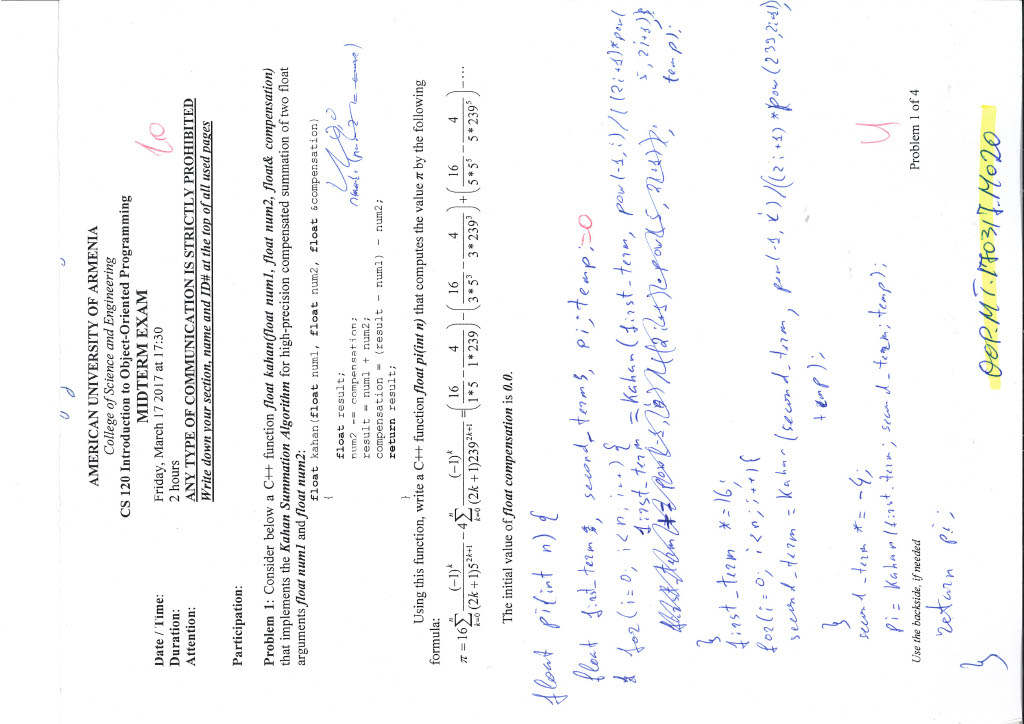 AMERICAN UNIVERSITY OF ARMENIA
College of Science and Engineering
CS 120 Introduction to Object-Oriented Programming
MIDTERM EXAM
10
Date / Time: Friday, March 17 2017 at 17:30
Duration: 2 hours
Attention: ANY TYPE OF COMMUNICATION IS STRICTLY PROHIBITED
Write down your section, name and ID# at the top of all used pages
Participation:
Problem 1: Consider below a C++ function float kahan(float num1, float num2, float& compensation)
that implements the Kahan Summation Algorithm for high-precision compensated summation of two float
arguments float num1 and float num2:
float kahan(float num1, float num2, float &compensation)
{
float result;
num2 -= compensation;
result = num1 + num2;
compensation = (result - num1) - num2;
return result;
}
Using this function, write a C++ function float pi(int n) that computes the value π by the following
formula:
π = 16 ∑ₖ₌₀ⁿ (-1)^k / (2k+1)5^(2k+1) - 4 ∑ₖ₌₀ⁿ (-1)^k / (2k+1)239^(2k+1) = (16/1*5 - 4/1*239) - (16/3*5³ - 4/3*239³) + (16/5*5⁵ - 4/5*239⁵) - ···
The initial value of float compensation is 0.0.
float pi(int n) {
float first_term, second_term, pi; temp;=0
for (i=0; i<n, i++) {
first_term = Kahan (first_term, pow(-1,i)/((2i+1)*pow(
5, 2i+1));
temp);
}
first_term *=16;
for(i=0; i<n; i++){
second_term = Kahan (second_term, pow(-1, i)/((2i+1)*pow(239,2i+1)
temp);
}
second_term *= -4;
pi = Kahan(first_term; second_term; temp);
4
Use the backside, if needed Problem 1 of 4
return pi;
}
OOP.MT.170317.M020